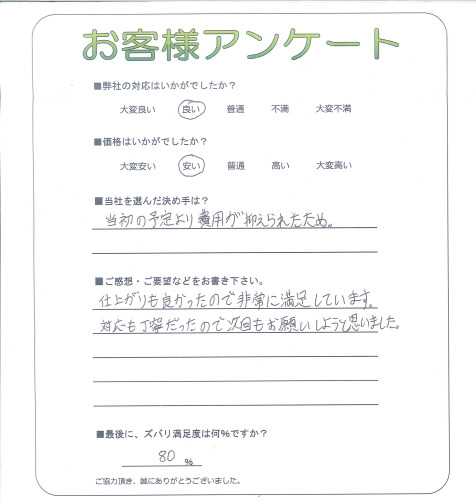 お客様アンケート
■弊社の対応はいかがでしたか?
大変良い 良い 普通 不満 大変不満
■価格はいかがでしたか?
大変安い 安い 普通 高い 大変高い
■当社を選んだ決め手は?
当初の予定より費用が抑えられたため。
■ご感想・ご要望などをお書き下さい。
仕上がりも良かったので非常に満足しています。
対応も丁寧だったので次回もお願いしようと思いました。
■最後に、ズバリ満足度は何%ですか?
80 %
ご協力頂き、誠にありがとうございました。